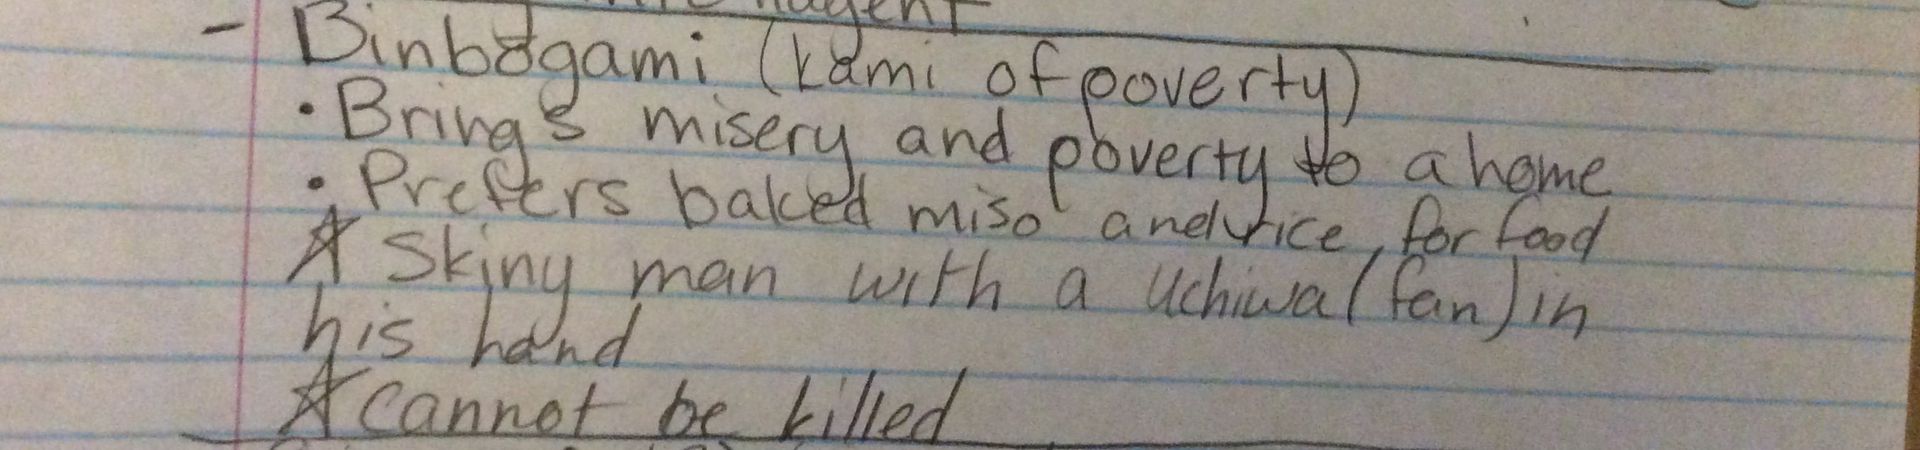 - Binbogami (kami of poverty)
• Brings misery and poverty to a home
• Prefers baked miso and rice, for food
☆ Skiny man with a uchiwa (fan) in
his hand
☆ cannot be killed